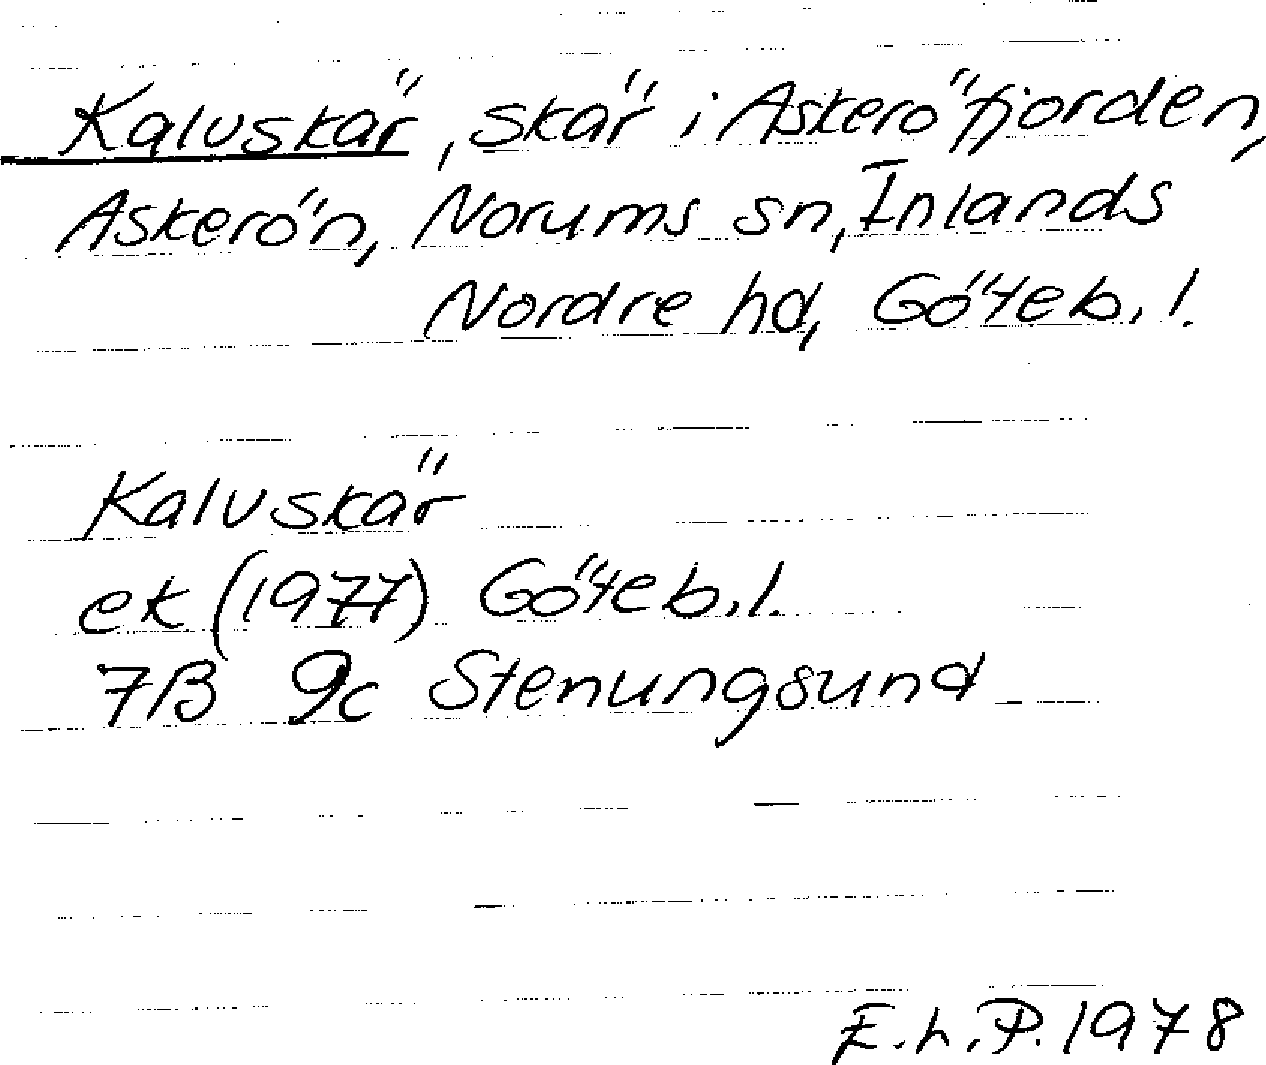 Kalvskär, skär i Askeröfjorden,
Askerön, Norums sn, Inlands
Nordre hd, Göteb. l.
Kalvskär
ek (1977) Göteb. l.
7B 9c Stenungsund
E.L.P. 1978